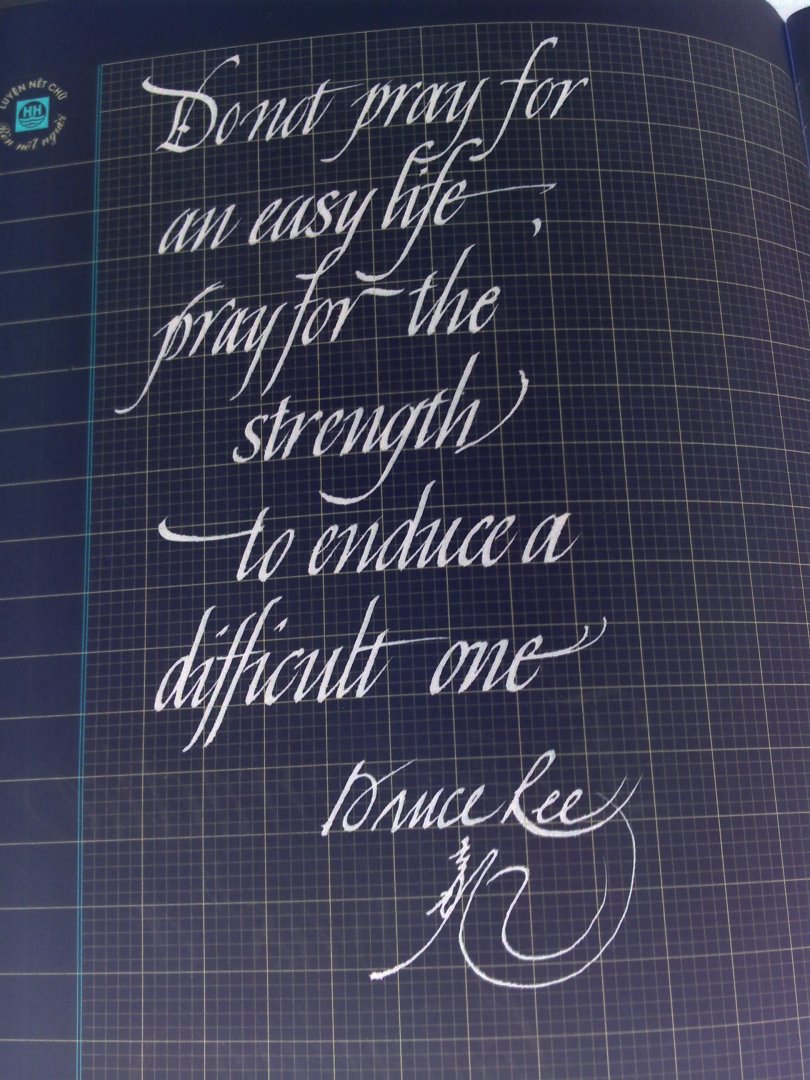 LUYỆN NÉT CHỮ
HH
Rèn nết người
Do not pray for
an easy life,
pray for the
strength
to enduce a
difficult one
Bruce Lee